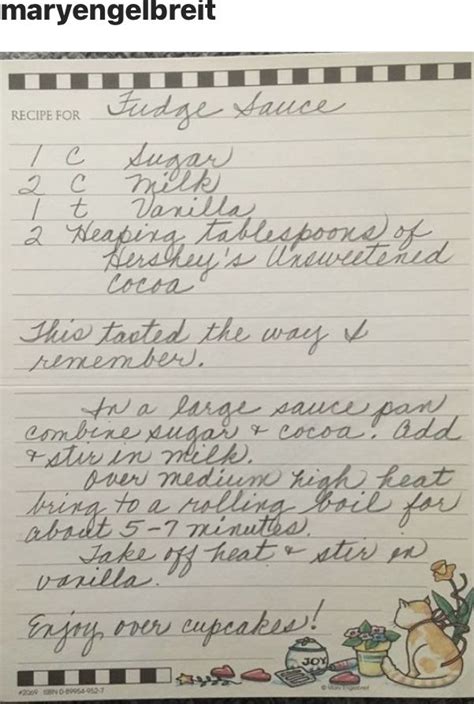 maryengelbreit
RECIPE FOR Fudge Sauce
1 C Sugar
2 C Milk
1 t Vanilla
2 Heaping tablespoons of
Hershey's Unsweetened
Cocoa
This tasted the way I
remember.
In a large sauce pan
combine sugar + cocoa. Add
+ stir in milk.
Over medium high heat
bring to a rolling boil for
about 5-7 minutes.
Take off heat + stir in
vanilla.
Enjoy over cupcakes!
JOY
#2069 ISBN 0-89954-952-7
© Mary Engelbreit